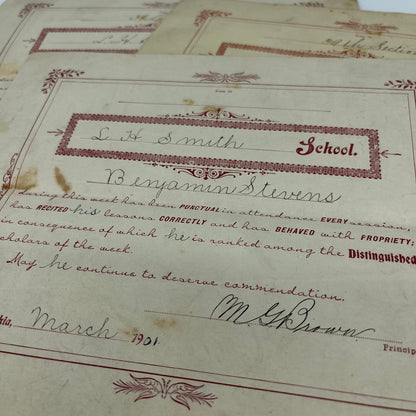 L H Smith School.
Benjamin Stevens
During this week has been PUNCTUAL in attendance EVERY session,
has RECITED his lessons CORRECTLY and has BEHAVED with PROPRIETY;
in consequence of which he is ranked among the Distinguished
scholars of the week.
May he continue to deserve commendation.
M G Brown
March 1901
Princip